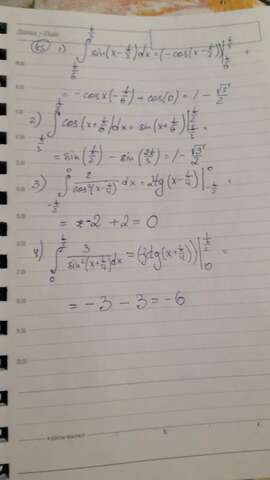 65 1) ∫_{π/6}^{π/3} sin(x-π/3)dx=(-cos(x-π/3))|_{π/6}^{π/3} =
= -cosx(-π/6)+cos(0)=1-√3/2
2) ∫_{π/3}^{π/2} cos(x+π/6)dx=sin(x+π/6)|_{π/3}^{π/2} =
= sin(π/2)-sin(2π/3)=1-√3/2
3) ∫_{-π/2}^{0} 2/cos²(x-π/4) dx=2tg(x-π/4)|_{-π/2}^{0} =
= -2+2=0
4) ∫_{0}^{π/2} 3/sin²(x+π/4) dx=(3ctg(x+π/4))|_{0}^{π/2} =
= -3-3=-6